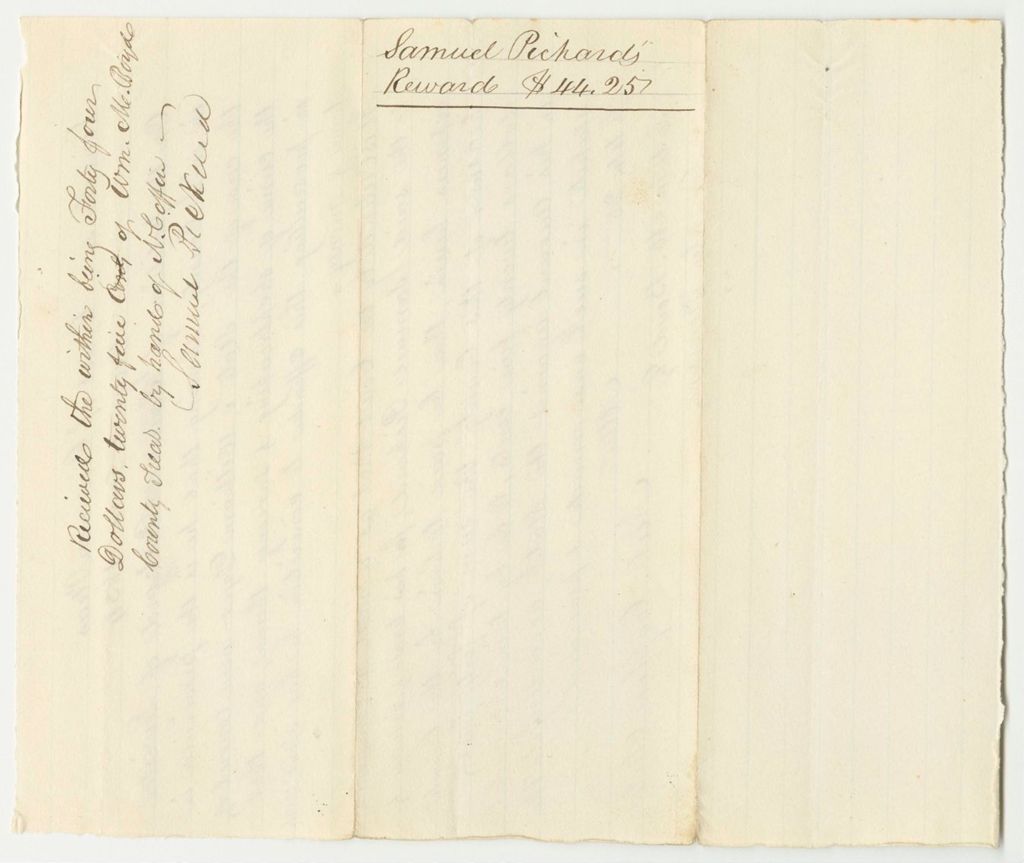 Samuel Pickard's
Reward $44.25
Recieved the within being Forty four
Dollars, twenty five Cents, of Wm. Mc. Boyd
County Treas. by hand of N. Coffin
Samuel Pickard